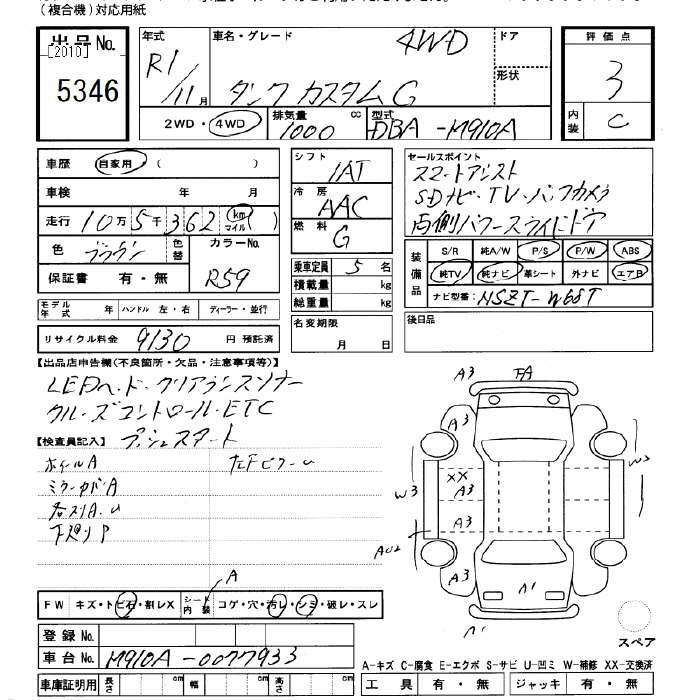 (複合機)対応用紙
出品No.
[2010]
5346
年式
R1/11月
車名・グレード
4WD
タンク カスタム G
ドア
形状
2WD・4WD
排気量
1000 cc
型式
DBA-M910A
評価点
3
内装
C
車歴 自家用・( )
車検 年 月
走行 10万5千362 km マイル ( )
色 ブラウン 色替
カラーNo. R59
保証書 有・無
モデル年式 年 ハンドル 左・右 ディーラー・並行
リサイクル料金 9130 円 預託済
シフト
IAT
冷房
AAC
燃料
G
乗車定員 5 名
積載量 kg
総重量 kg
名変期限
月 日
セールスポイント
スマートアシスト
SDナビ・TV・バックカメラ
両側パワースライドドア
装備品
S/R 純A/W P/S P/W ABS
純TV 純ナビ 革シート 外ナビ エアB
ナビ型番: NSZT-W68T
後日品
【出品店申告欄(不良箇所・欠品・注意事項等)】
LEDヘッド・クリアランスソナー
クルーズコントロール・ETC
プッシュスタート
【検査員記入】
ホイールA
ミラーカバA
下廻りP
FW キズ・トビ石・割レX
シート内装
A
コゲ・穴・汚レ・シミ・破レ・スレ
登録No.
車台No. M910A-0077933
車庫証明用 長さ cm 幅 cm 高さ cm
A3
FA
A3
XX
A3
A3
A3
W3
W3
AU2
スペア
A-キズ C-腐食 E-エクボ S-サビ U-凹ミ W-補修 XX-交換済
工具 有・無 ジャッキ 有・無